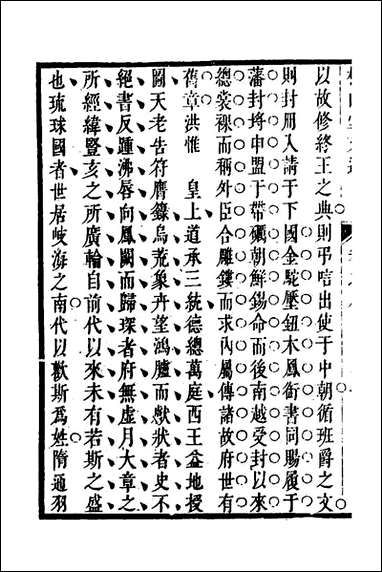 以故修終王之典則弔唁出使于中朝循班爵之文
則封冊入請于下國金駝壓鈕木鳳銜書同賜履于
藩封埒申盟于帶礪朝鮮錫命而後南越受封以來
總裳裸而稱外臣合雕鏤而求內屬傳諸故府世有
舊章洪惟 皇上道承三統德總萬庭西王益地授
圖天老告符膺籙烏荒象卉望鴻臚而獻狀者史不
絕書反踵沸唇向鳳闕而歸琛者府無虛月大章之
所經緯豎亥之所廣輪自前代以來未有若斯之盛
也琉球國者世居岐海之南代以歡斯爲姓隋通羽